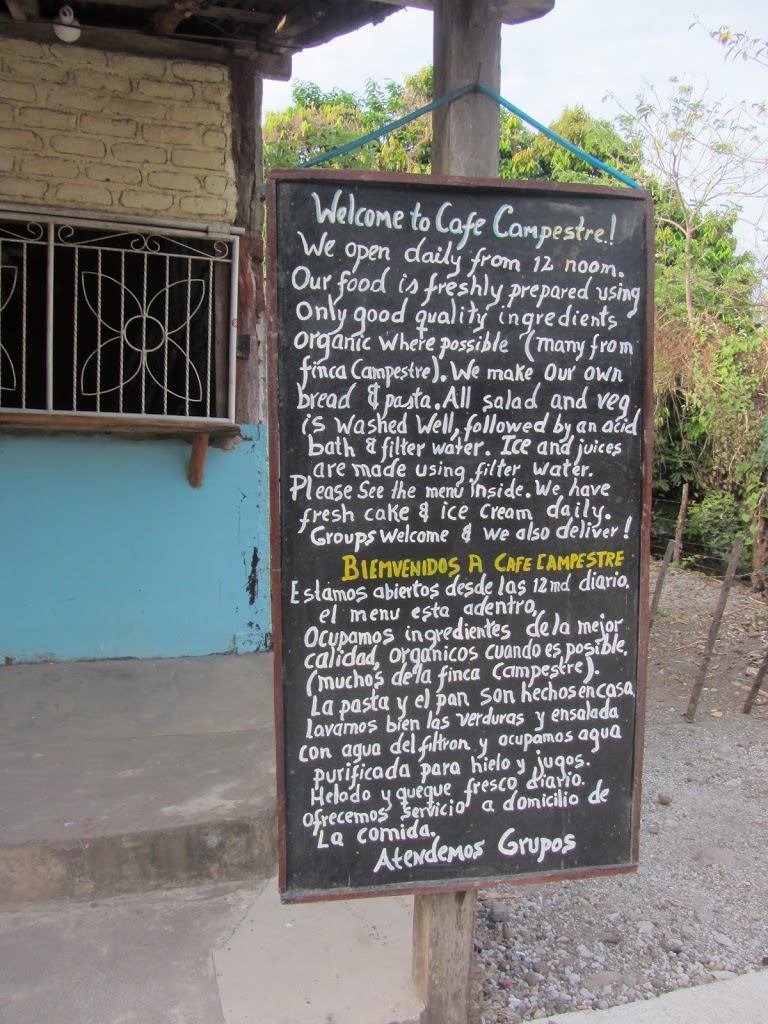 Welcome to Cafe Campestre!
We open daily from 12 noom.
Our food is freshly prepared using
Only good quality ingredients
organic where possible (many from
finca Campestre). We make our own
bread & pasta. All salad and veg
is washed well, followed by an acid
bath & filter water. Ice and juices
are made using filter water.
Please See the menu inside. We have
fresh cake & ice cream daily.
Groups welcome & we also deliver!
BIEMVENIDOS A CAFE CAMPESTRE
Estamos abiertos desde las 12 md diario.
el menu esta adentro.
Ocupamos ingredientes de la mejor
calidad, organicos cuando es posible.
(muchos de la finca Campestre).
La pasta y el pan son hechos en casa
Lavamos bien las verduras y ensalada
con agua del filtron y ocupamos agua
purificada para hielo y jugos.
Helado y queque fresco diario.
ofrecemos servicio a domicilio de
La comida.
Atendemos Grupos